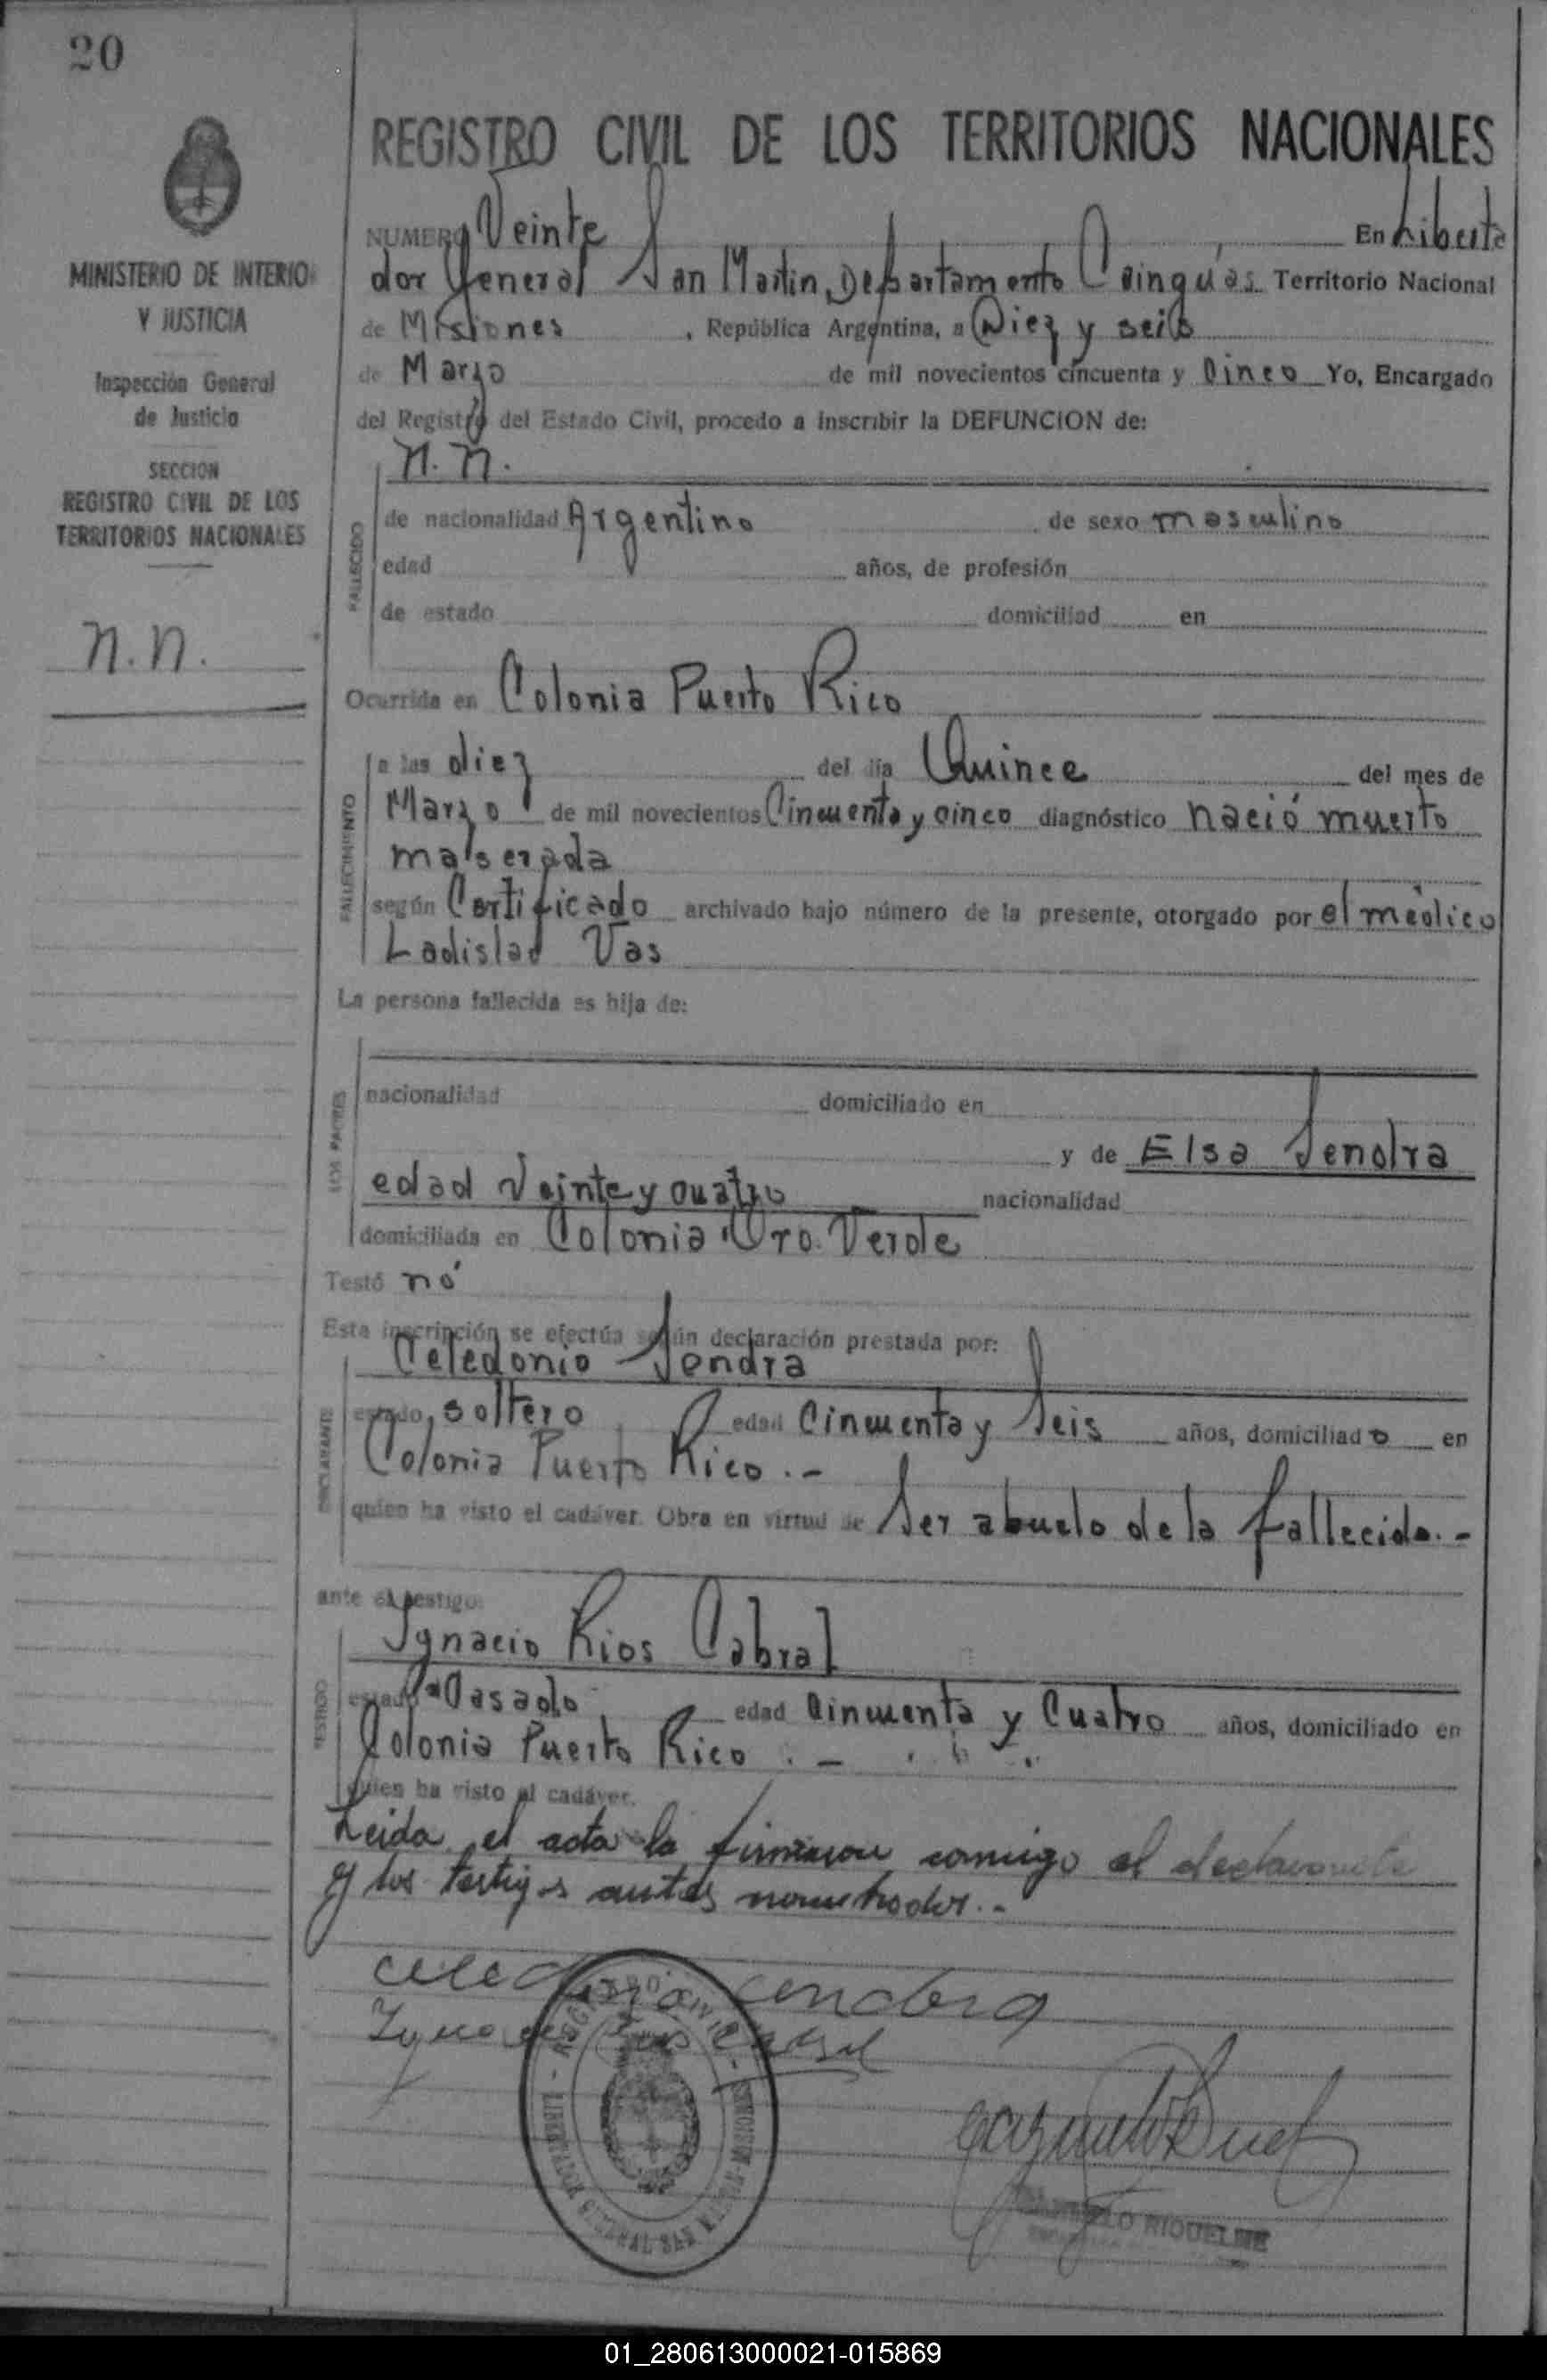 20
MINISTERIO DE INTERIOR
Y JUSTICIA
Inspección General
de Justicia
SECCION
REGISTRO CIVIL DE LOS
TERRITORIOS NACIONALES
N.N.
REGISTRO CIVIL DE LOS TERRITORIOS NACIONALES
NUMERO Veinte En Liberta
dor General San Martin, Departamento Cainguás Territorio Nacional
de Misiones, República Argentina, a Diez y seis
de Marzo de mil novecientos cincuenta y Cinco Yo, Encargado
del Registro del Estado Civil, procedo a inscribir la DEFUNCION de:
N.N.
FALLECIDO
de nacionalidad Argentino de sexo masculino
edad años, de profesión
de estado domiciliad en
Ocurrida en Colonia Puerto Rico
FALLECIMIENTO
a las diez del día Quince del mes de
Marzo de mil novecientos Cincuenta y cinco diagnóstico nació muerto
malserada
según Certificado archivado bajo número de la presente, otorgado por el médico
Ladislad Vas
La persona fallecida es hija de:
LOS PADRES
nacionalidad domiciliado en
y de Elsa Sendra
edad Veinte y cuatro nacionalidad
domiciliada en Colonia Oro Verde
Testó nó
Esta inscripción se efectúa según declaración prestada por:
Celedonio Sendra
DECLARANTE
estado, soltero edad Cincuenta y Seis años, domiciliado en
Colonia Puerto Rico.-
quien ha visto el cadáver. Obra en virtud de Ser abuelo de la fallecida.-
ante el testigo:
Ygnacio Rios Cabral
TESTIGO
estado Casado edad Cincuenta y Cuatro años, domiciliado en
Colonia Puerto Rico.-
quien ha visto el cadáver.
Leida el acta la firmaron conmigo el declarante
y los testigos antes nombrados.-
Celedonio Cendra
Ignacio Rios Cabral
REGISTRO CIVIL - MISIONES - LIBERTADOR GENERAL SAN MARTIN
RIQUELME
01_280613000021-015869